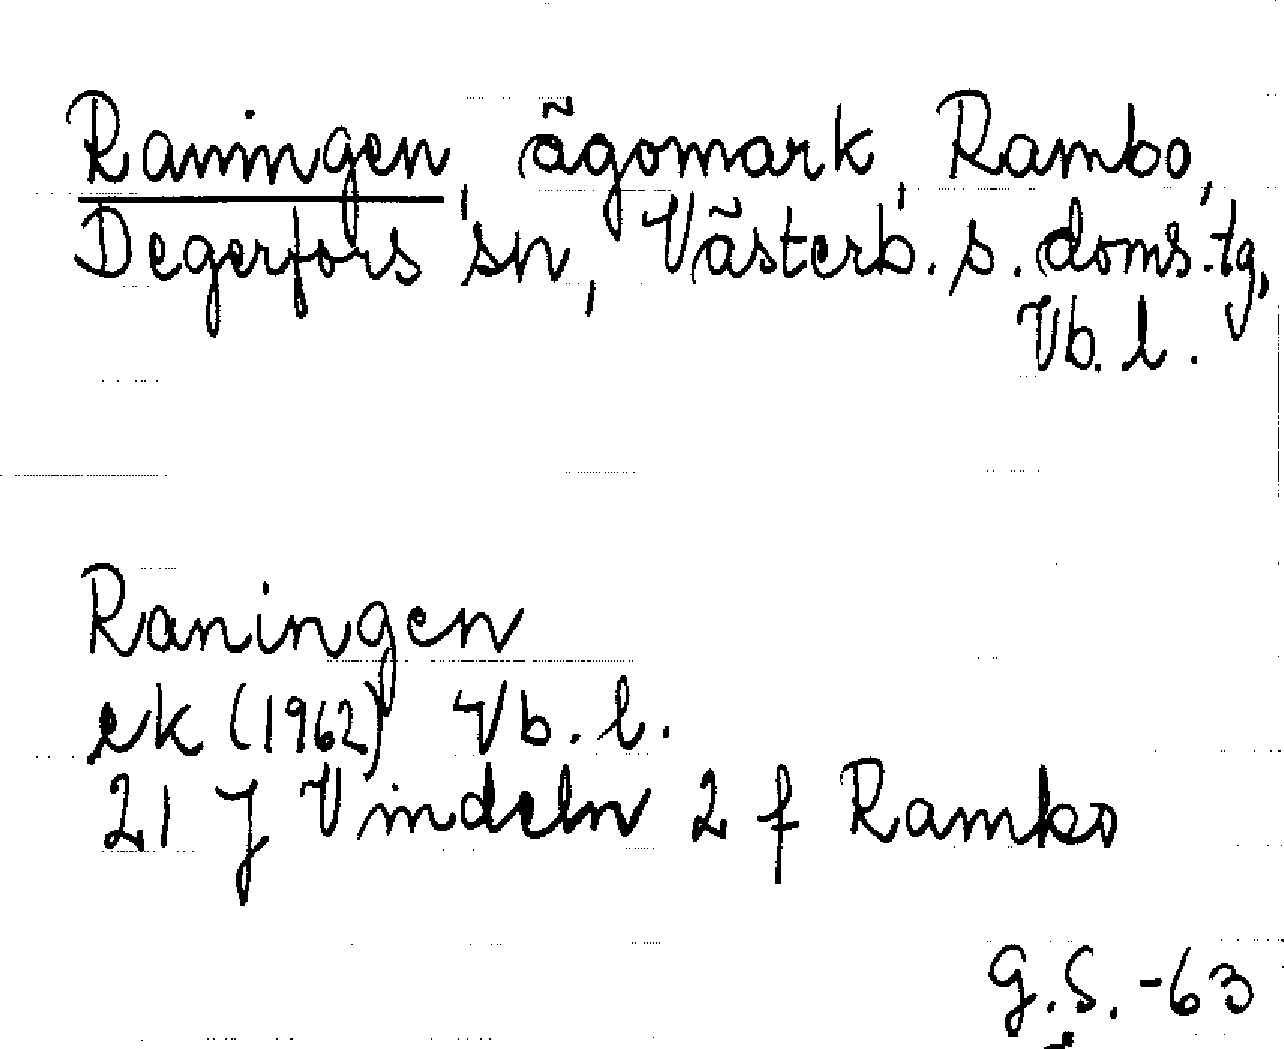 Raningen, ägomark, Rambo,
Degerfors sn, Västerb. s. doms. tg,
Vb. l.
Raningen
ek (1962) Vb. l.
21 J Vindeln 2 f Rambo
G.S. -63